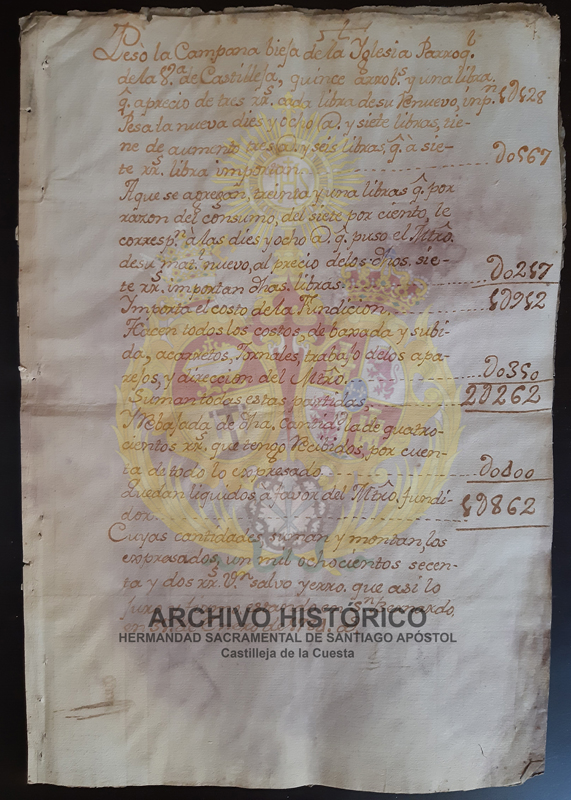 Pesò la Campana biesa de la Yglesia Parroq.l
de la V.a de Castilleja, quince arrob.s y una libra.
q̃. a precio de tres rr.s cada libra de su Renuevo, imp.n 1D128
Pesa la nueva dies y ocho @. y siete libras, tie-
ne de aumento tres @. y seis libras, q̃. a sie-
te rr.s libra importan Do567
A que se agregan, treinta y una libras q̃. por
razon del consumo, del siete por ciento, le
corresp.n à las dies y ocho @. q̃. puso el Mtrô.
de su mat.l nuevo, al precio de los dhôs. sie-
te rr.s importan dhas. libras Do217
Importa el costo de la Fundicion
Hacen todos los costos, de baxada y subi-
da, acarretos, Jornales, trabajo de los apa-
rejos, y direccion del Mtrô. Do350
Suman todas estas partidas 2D262
Y Rebajada de dha. cantid.d la de quatro-
cientos rr.s que tengo Recibidos, por cuen-
ta de todo lo expresado D400
quedan liquidos a favor del Mtrô. fundi-
dor 1D862
Cuyas cantidades, suman y montan, los
expresados, un mil ochocientos secen-
ta y dos rr.s V.n salvo yerro. que asi lo
Bernardo,
ARCHIVO HISTÓRICO
HERMANDAD SACRAMENTAL DE SANTIAGO APÓSTOL
Castilleja de la Cuesta